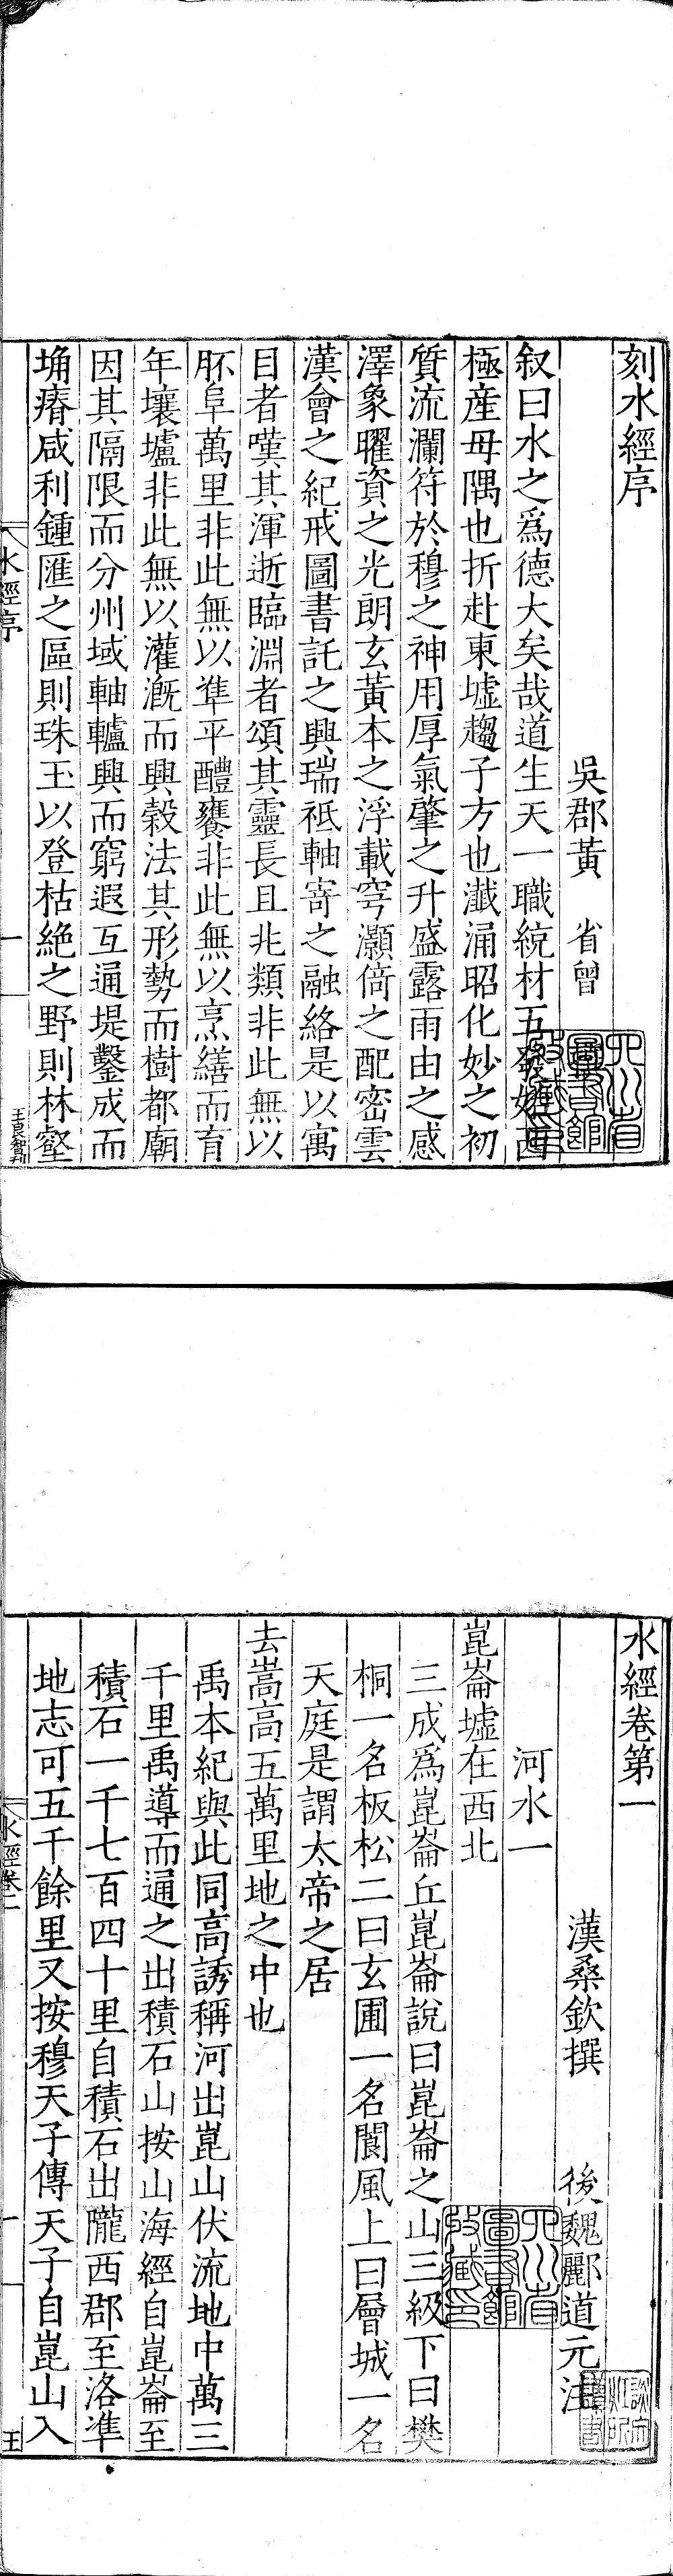 刻水經序
吳郡黃 省曾
叙曰水之爲德大矣哉道生天一職統材五發始西
極産毋隅也折赴東墟趨子方也瀸涌昭化妙之初
質流瀾符於穆之神用厚氣肇之升盛露雨由之感
澤象曜資之光朗玄黃本之浮載穹灝倚之配密雲
漢會之紀戒圖書託之興瑞祗軸寄之融絡是以寓
目者嘆其渾逝臨淵者頌其靈長且兆類非此無以
胚阜萬里非此無以準平醴饔非此無以烹繕而育
年壤壚非此無以灌漑而興穀法其形勢而樹都廟
因其隔限而分州域軸轤興而窮遐互通堤鑿成而
埆瘠咸利鍾匯之區則珠玉以登枯絶之野則林壑
水經序
一
王良智刊
四川省
圖書館
收藏印
水經卷第一
漢桑欽撰 後魏酈道元注
河水一
崑崙墟在西北
三成爲崑崙丘崑崙說曰崑崙之山三級下曰樊
桐一名板松二曰玄圃一名閬風上曰層城一名
天庭是謂太帝之居
去嵩高五萬里地之中也
禹本紀與此同高誘稱河出崑山伏流地中萬三
千里禹導而通之出積石山按山海經自崑崙至
積石一千七百四十里自積石出隴西郡至洛準
地志可五千餘里又按穆天子傳天子自崑山入
水經卷一
一
王
四川省
圖書館
收藏印